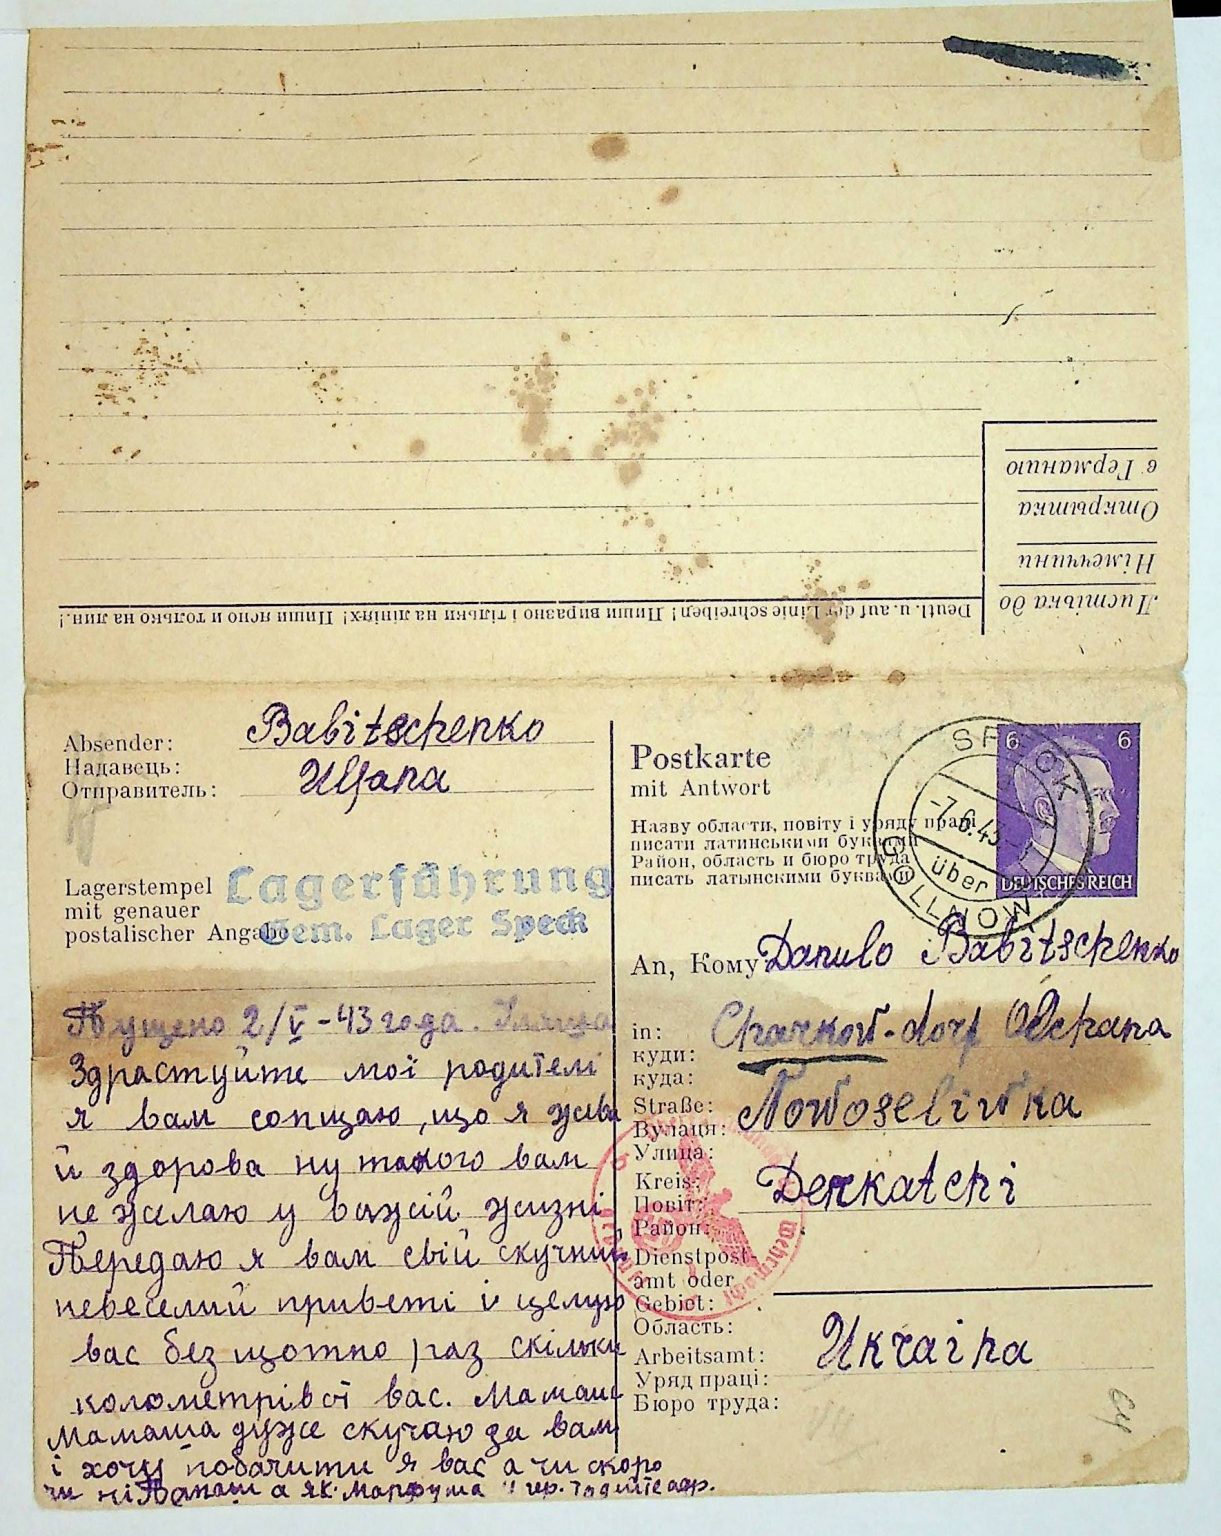 Листівка до
Німеччини
Открытка
в Германию
Deutl. u. auf der Linie schreiben! Пиши виразно і тільки на лініях! Пиши ясно и только на лин.!
Absender: Babitschenko
Надавець:
Отправитель: Uljana
Lagerstempel
mit genauer
postalischer Angabe
Lagerführung
Gem. Lager Speck
Пущено 2/V-43 года.
Здраствуйте мої родителі
я вам сопщаю, що я жива
й здорова ну такого вам
не желаю у важій жизні
Передаю я вам свій скучний
невеселий приветі і целую
вас без щотно раз скільки
колометрівот вас. Мамаша
Мамаша дуже скучаю за вами
і хочу побачити я вас а чи скоро
чи ні а як
Postkarte
mit Antwort
Назву области, повіту і уряду праці
писати латинськими буквами
Район, область и бюро труда
писать латынскими буквами
6 6
DEUTSCHES REICH
SPECK
-7.6.43
über
GOLLNOW
An, Кому: Danulo Babitschenko
in: Charkow-dorf Olchana
куди:
куда:
Straße: Nowoseliwka
Вулиця:
Улица:
Kreis: Derkatchi
Повіт:
Район:
Dienstpost-
amt oder
Gebiet:
Область:
Arbeitsamt: Ukraina
Уряд праці:
Бюро труда:
Wehrmacht